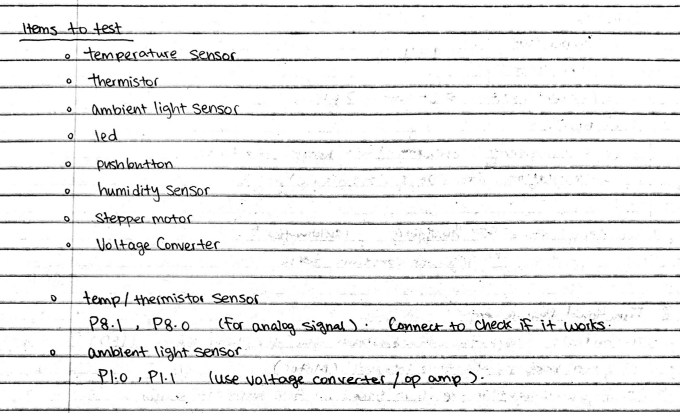 Items to test
◦ temperature sensor
◦ thermistor
◦ ambient light sensor
◦ led
◦ pushbutton
◦ humidity sensor
◦ stepper motor
◦ Voltage Converter
◦ temp/thermistor sensor
P8.1, P8.0 (for analog signal). Connect to check if it works.
◦ ambient light sensor
P1.0, P1.1 (use voltage converter / op amp).